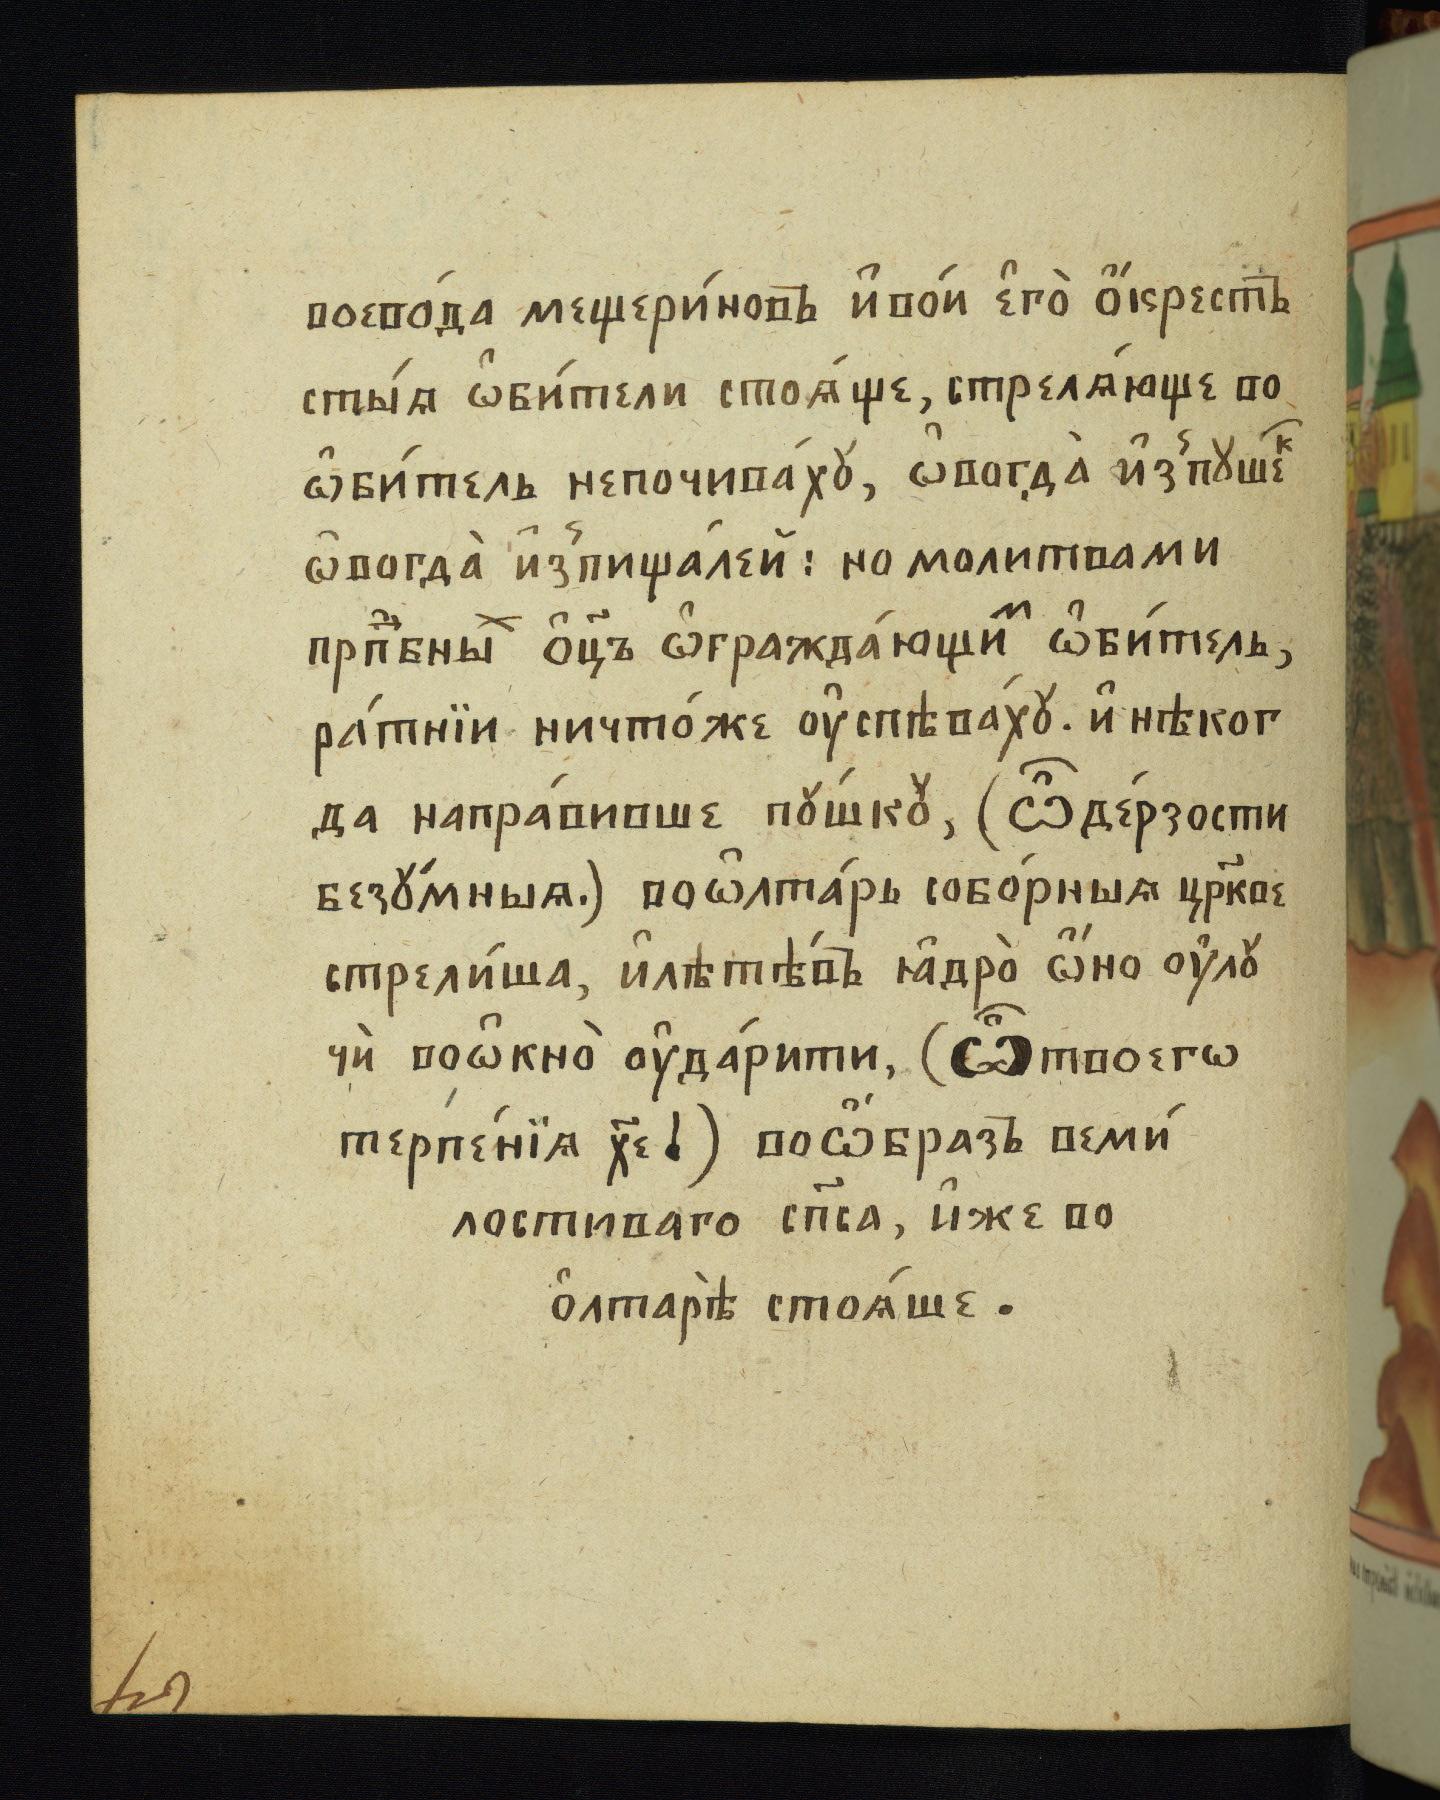 воево́да мещери́новъ и҆вои́ є҆го̀ ѻ҆́крестъ
сты́ѧ ѡ҆би́тели стоѧ́ще, стрелѧ́юще во
ѡ҆би́тель непочива́хꙋ, ѡ҆вогда̀ и҆зпꙋшекъ
ѡ҆вогда̀ и҆зпища́лей: но молитвами
прпⷣбныⷯ ѻ҆ц҃ъ ѡ҆гражда́ющиⷨ ѡ҆би́тель,
ра́тнїи ничто́же ᲂу҆спѣва́хꙋ. и҆ нѣког
да напра́вивше пꙋ́шкꙋ, (ѿде́рзости
безꙋ́мныѧ.) воѡ҆лта́рь собо́рныѧ цр҃кве
стрели́ша, и҆лѣтѣ́въ ꙗ҆дро̀ ѡ҆́но ᲂу҆лꙋ
чѝ воѡ҆кно̀ ᲂу҆да́рити, (Ѿтвоегѡ
терпе́нїѧ хрⷭ҇е!) воѡ҆́бразъ веми́
лостиваго сп҃са, и҆же во
ѻ҆лтарѣ̀ стоѧ́ше.